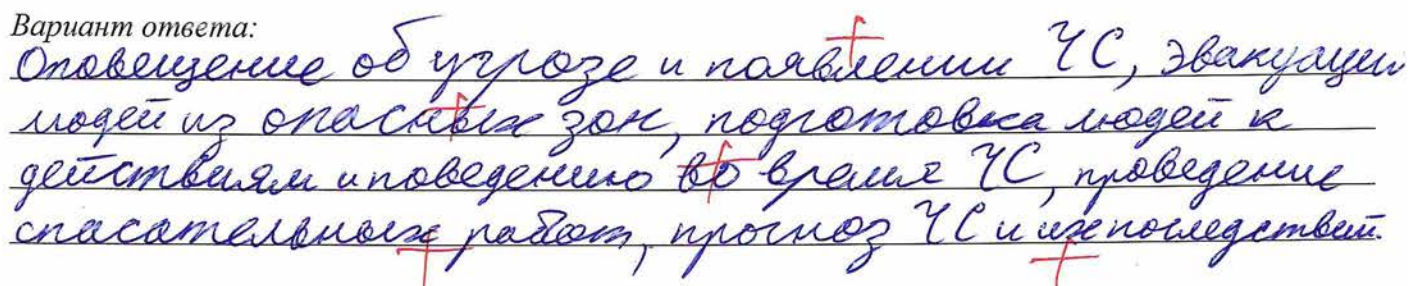 Вариант ответа:
Оповещение об угрозе и появлении ЧС, эвакуация
людей из опасных зон, подготовка людей к
действиям и поведению во время ЧС, проведение
спасательных работ, прогноз ЧС и их последствий.